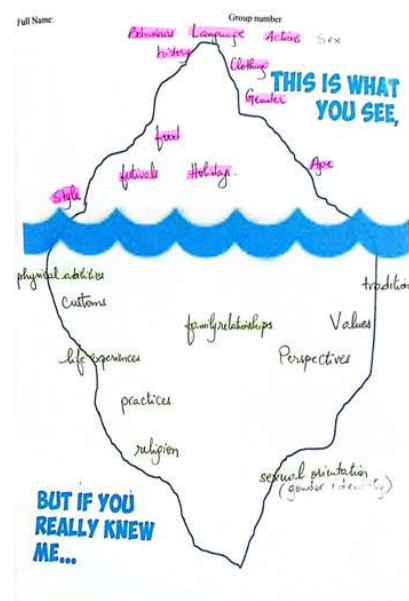 Full Name: Group number
Behaviours Language Actions Sex
history
Clothing
THIS IS WHAT
YOU SEE,
Gender
food
Age
festivals Holidays.
Style
physical abilities
tradition
Customs
family relationships
Values
life experiences
Perspectives
practices
religion
sexual orientation
(gender identity)
BUT IF YOU
REALLY KNEW
ME...